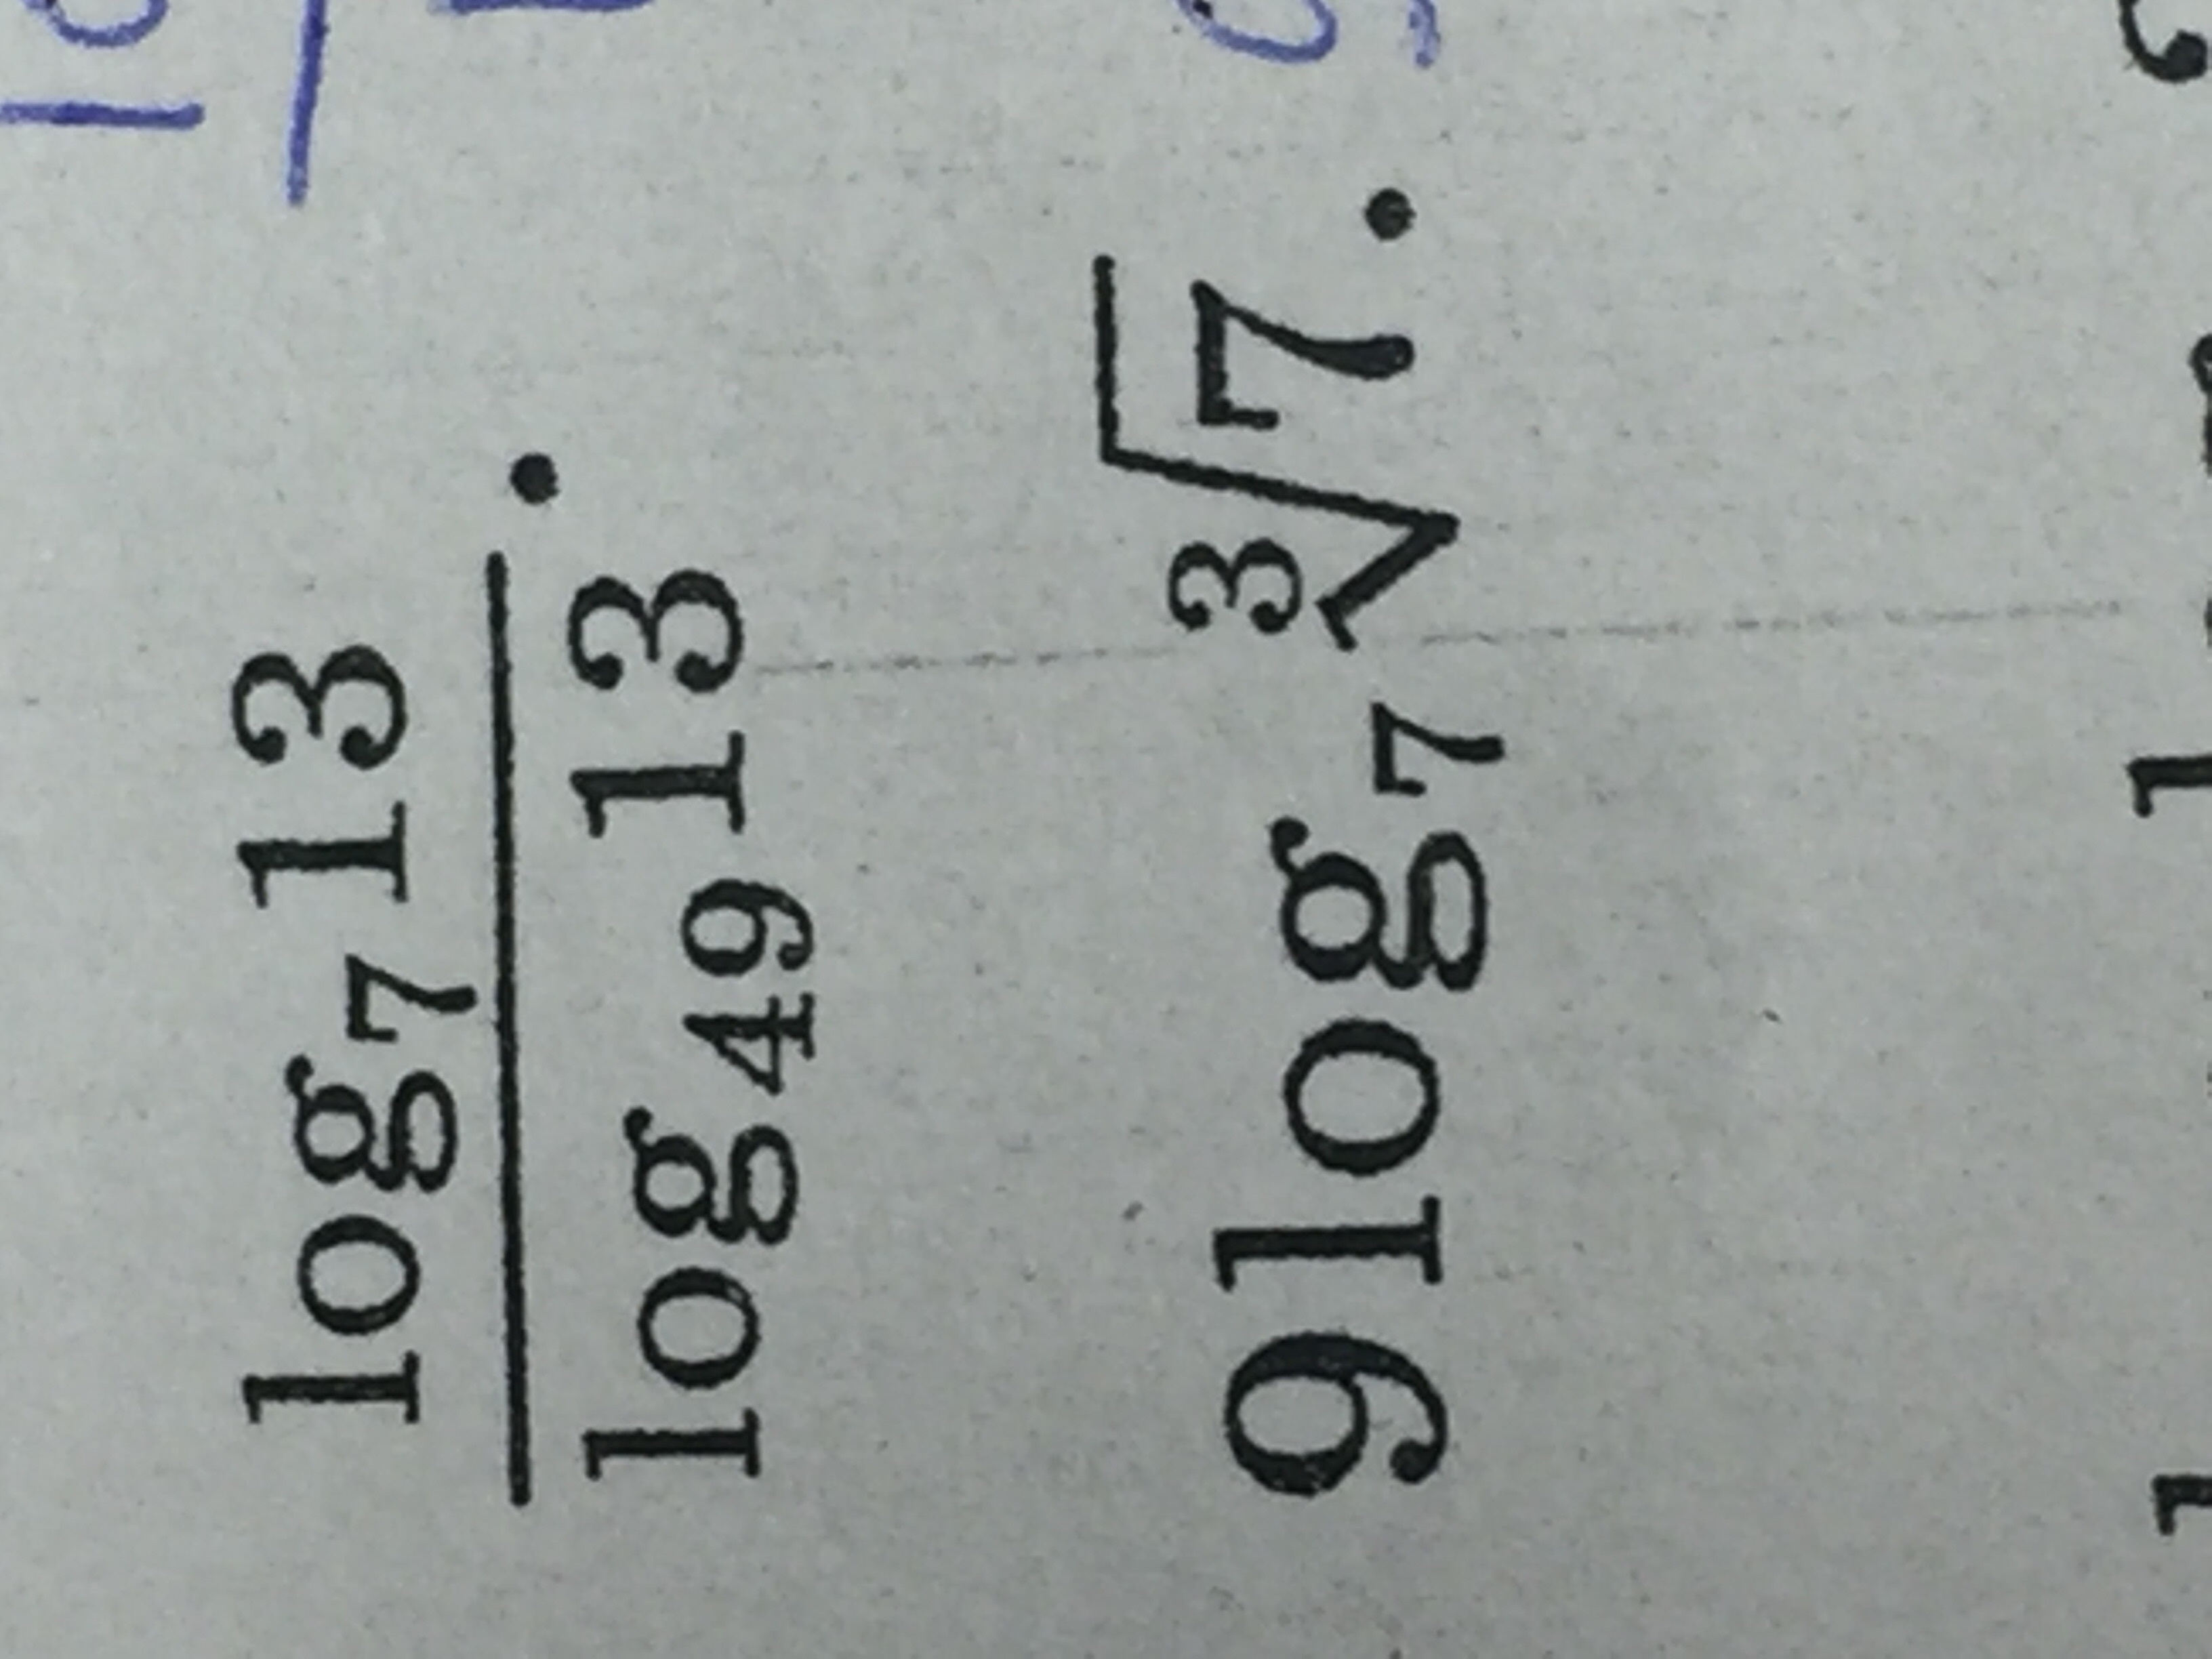 log₇ 13
log₄₉ 13 .
9 log₇ ∛7 .